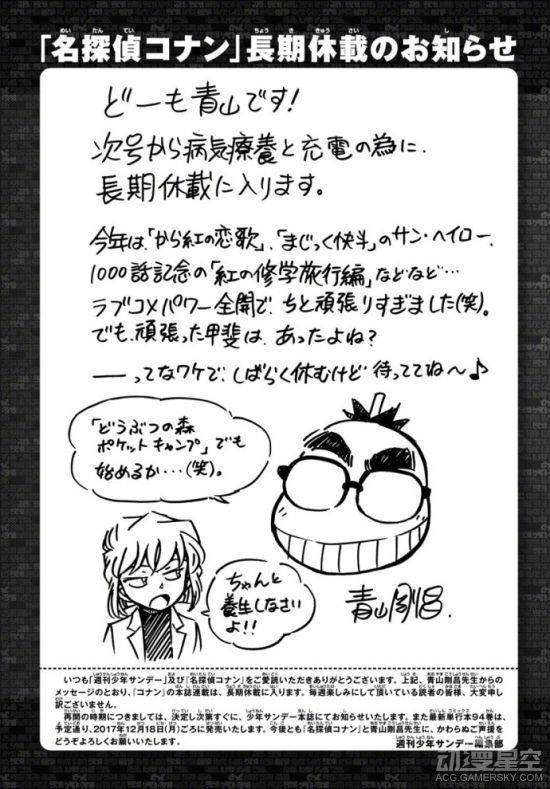 「名探偵コナン」長期休載のお知らせ
どーも青山です!
次号から病気療養と充電の為に、
長期休載に入ります。
今年は、「から紅の恋歌」、「まじっく快斗」のサン・ヘイロー、
1000話記念の「紅の修学旅行編」などなど…
ラブコメパワー全開で、ちと頑張りすぎました(笑)。
でも、頑張った甲斐は、あったよね?
——ってなワケで、しばらく休むけど 待っててね〜♪
「どうぶつの森
ポケットキャンプ」でも
始めるか…(笑)。
ちゃんと
養生しなさい
よ!!
青山剛昌.
いつも「週刊少年サンデー」及び「名探偵コナン」をご愛読いただきありがとうございます。上記、青山剛昌先生からの
メッセージのとおり、『コナン』の本誌連載は、長期休載に入ります。毎週楽しみにして頂いている読者の皆様、大変申し
訳ございません。
再開の時期につきましては、決定し次第すぐに、少年サンデー本誌にてお知らせいたします。また最新単行本94巻は、
予定通り、2017年12月18日(月)ごろに発売いたします。今後とも「名探偵コナン」と青山剛昌先生に、かわらぬご声援を
どうぞよろしくお願いいたします。
週刊少年サンデー編集部
动漫星空
ACG.GAMERSKY.COM